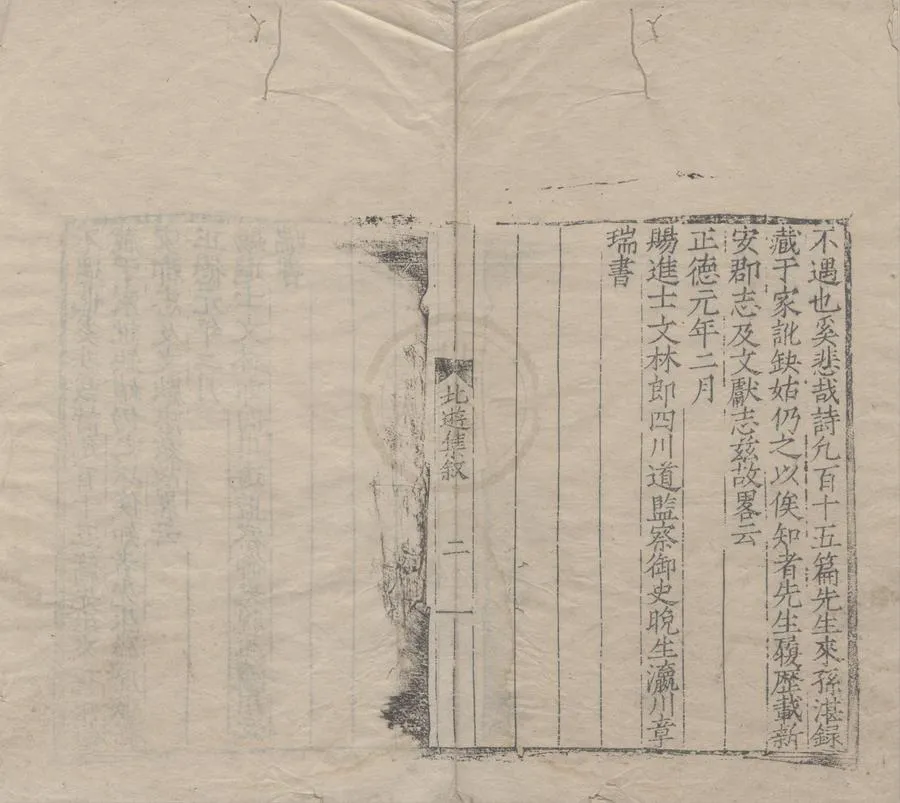 不遇也奚悲哉詩凢百十五篇先生來孫湛録
藏于家訛缺姑仍之以俟知者先生履歷載新
安郡志及文獻志茲故畧云
正德元年二月
賜進士文林郎四川道監察御史晚生瀛川章
瑞書
北遊集叙
二